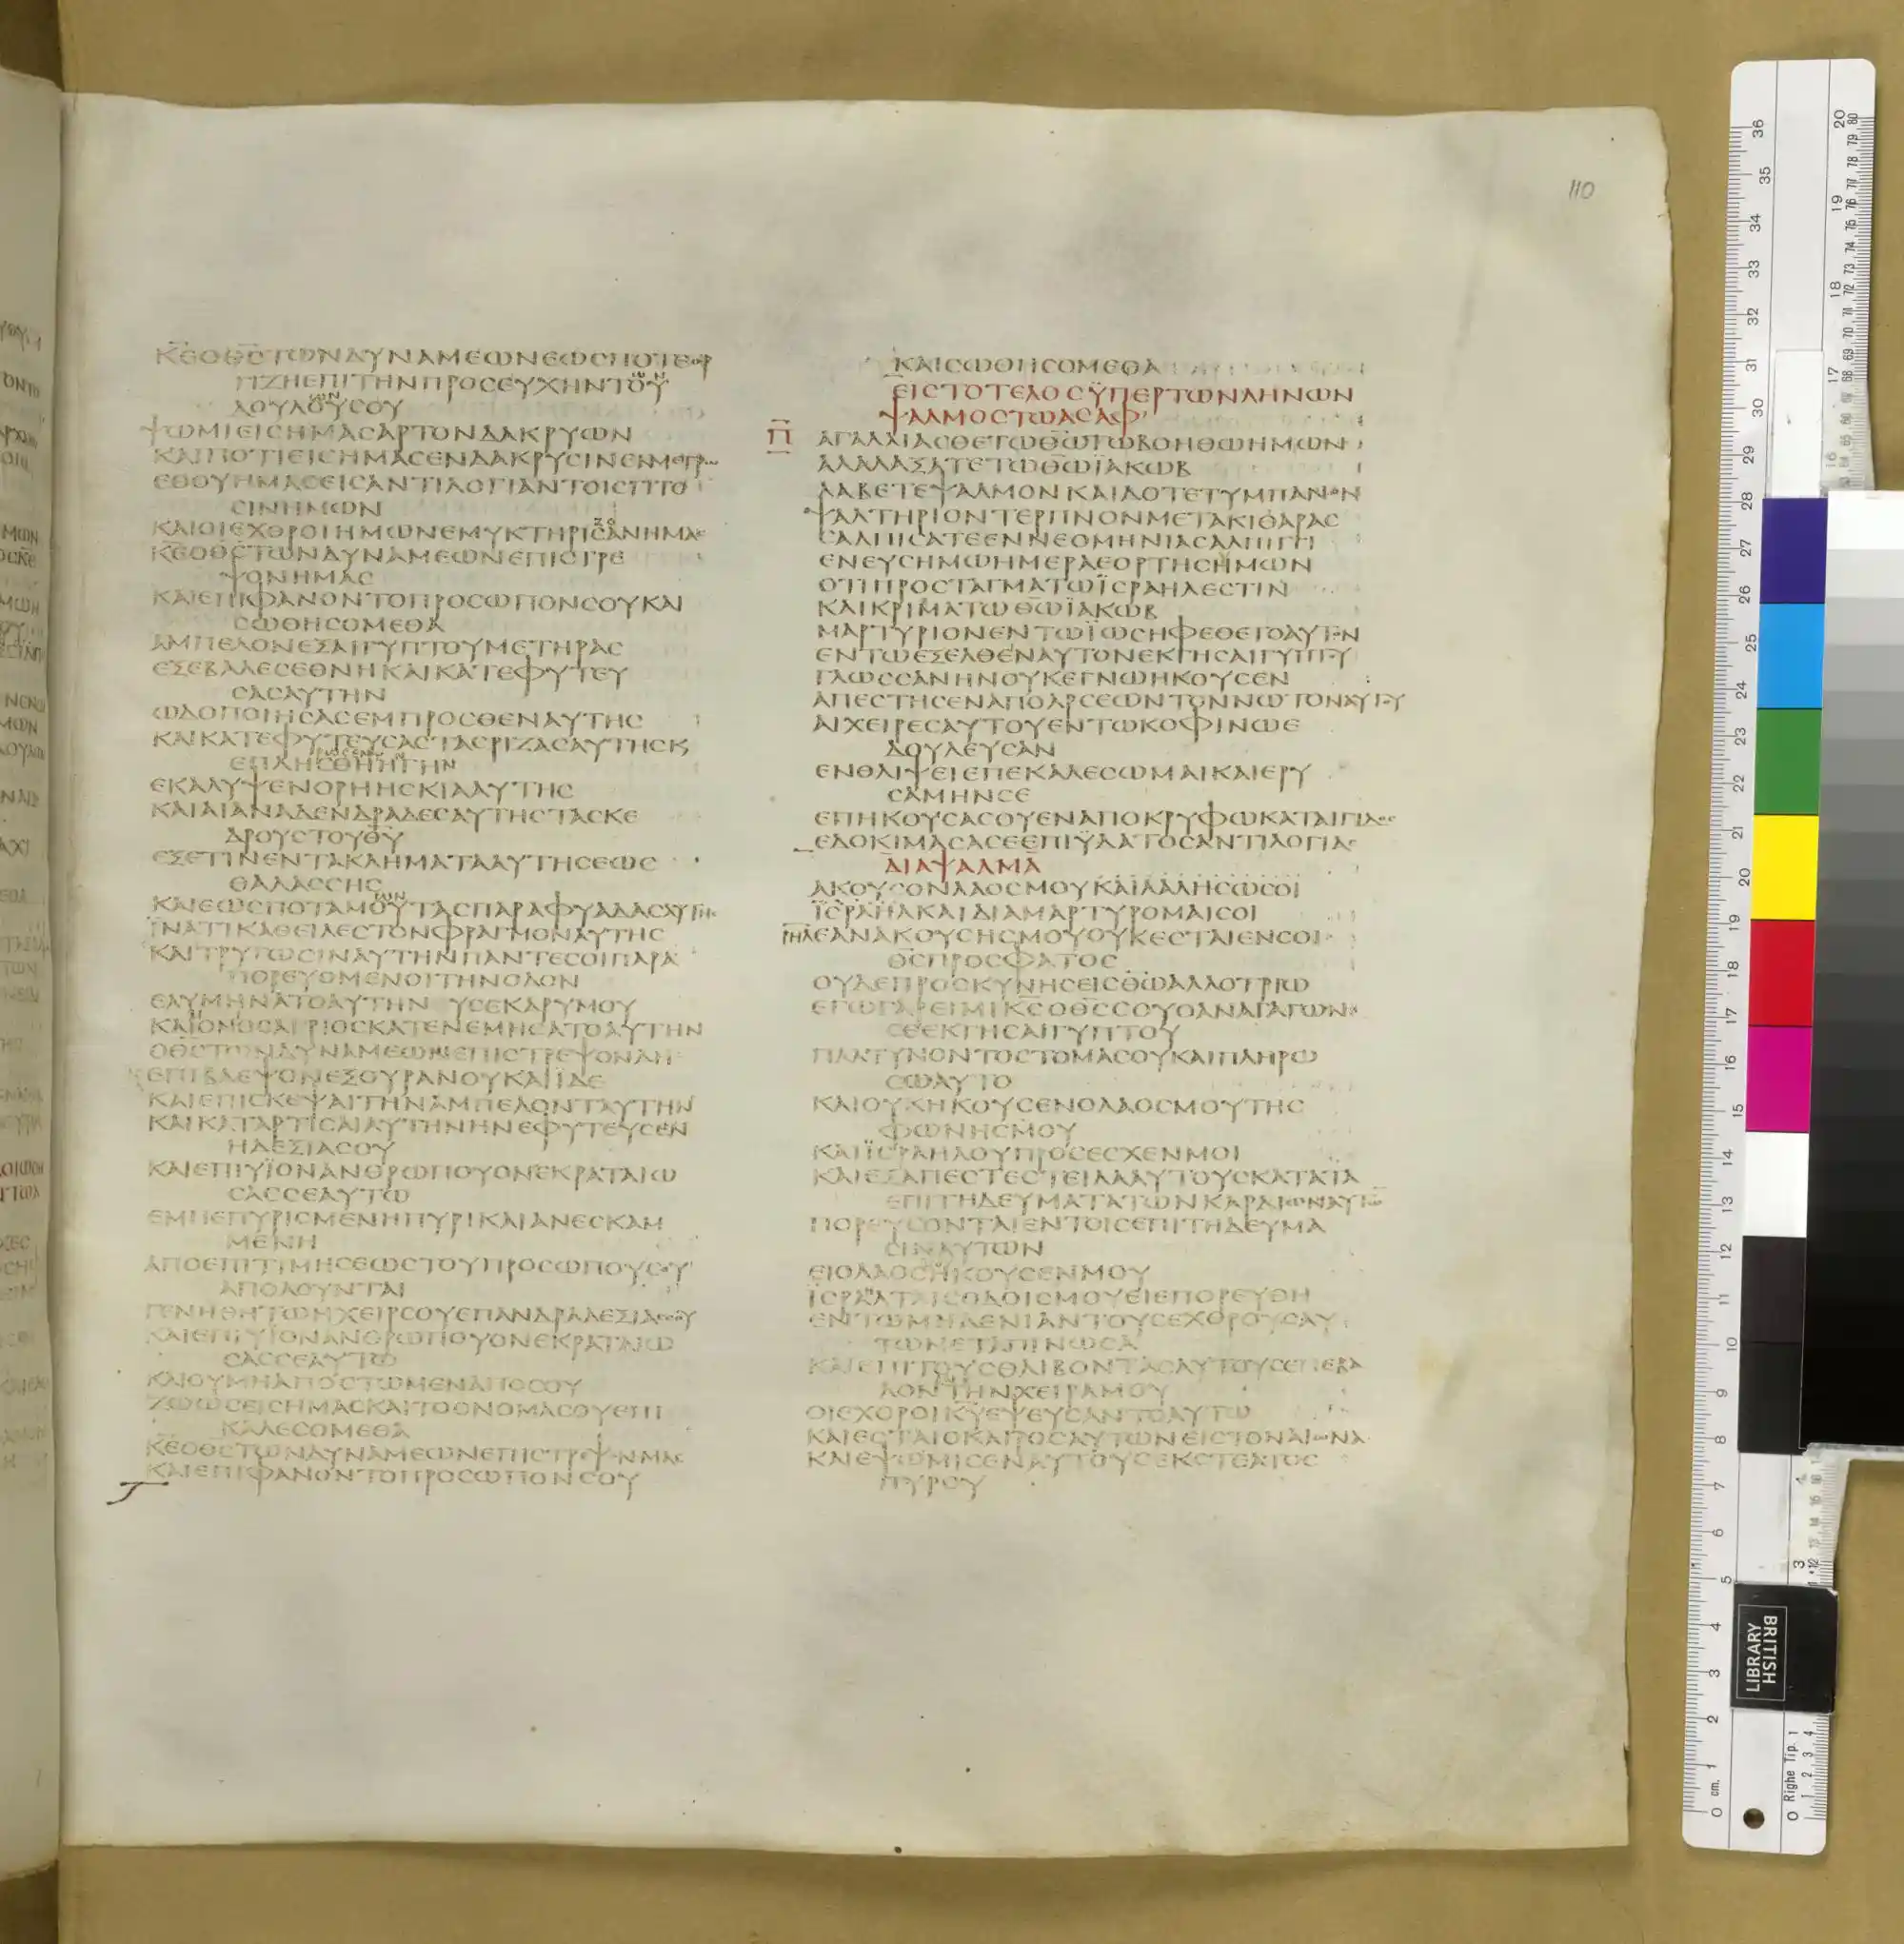 110
ΚΕΟΘΣΤΩΝΔΥΝΑΜΕΩΝΕΩΣΠΟΤΕΟΡ
ΓΙΖΗΕΠΙΤΗΝΠΡΟΣΕΥΧΗΝΤΟΥ
ΔΟΥΛΟΥΣΟΥ
ΨΩΜΙΕΙΣΗΜΑΣΑΡΤΟΝΔΑΚΡΥΩΝ
ΚΑΙΠΟΤΙΕΙΣΗΜΑΣΕΝΔΑΚΡΥΣΙΝΕΝΜΕΤΡΩ
ΕΘΟΥΗΜΑΣΕΙΣΑΝΤΙΛΟΓΙΑΝΤΟΙΣΓΙΤΟ
ΣΙΝΗΜΩΝ
ΚΑΙΟΙΕΧΘΡΟΙΗΜΩΝΕΜΥΚΤΗΡΙΣΑΝΗΜΑΣ
ΚΕΟΘΣΤΩΝΔΥΝΑΜΕΩΝΕΠΙΣΤΡΕ
ΨΟΝΗΜΑΣ
ΚΑΙΕΠΙΦΑΝΟΝΤΟΠΡΟΣΩΠΟΝΣΟΥΚΑΙ
ΣΩΘΗΣΟΜΕΘΑ
ΑΜΠΕΛΟΝΕΞΑΙΓΥΠΤΟΥΜΕΤΗΡΑΣ
ΕΞΕΒΑΛΕΣΕΘΝΗΚΑΙΚΑΤΕΦΥΤΕΥ
ΣΑΣΑΥΤΗΝ
ΩΔΟΠΟΙΗΣΑΣΕΜΠΡΟΣΘΕΝΑΥΤΗΣ
ΚΑΙΚΑΤΕΦΥΤΕΥΣΑΣΤΑΣΡΙΖΑΣΑΥΤΗΣΚ
ΕΠΛΗΣΘΗΗΓΗΝ
ΕΚΑΛΥΨΕΝΟΡΗΗΣΚΙΑΑΥΤΗΣ
ΚΑΙΑΙΑΝΑΔΕΝΔΡΑΔΕΣΑΥΤΗΣΤΑΣΚΕ
ΔΡΟΥΣΤΟΥΘΥ
ΕΞΕΤΙΝΕΝΤΑΚΛΗΜΑΤΑΑΥΤΗΣΕΩΣ
ΘΑΛΑΣΣΗΣ
ΚΑΙΕΩΣΠΟΤΑΜΟΥΤΑΣΠΑΡΑΦΥΑΔΑΣΑΥΤΗΣ
ΪΝΑΤΙΚΑΘΕΙΛΕΣΤΟΝΦΡΑΓΜΟΝΑΥΤΗΣ
ΚΑΙΤΡΥΓΩΣΙΝΑΥΤΗΝΠΑΝΤΕΣΟΙΠΑΡΑ
ΠΟΡΕΥΟΜΕΝΟΙΤΗΝΟΔΟΝ
ΕΛΥΜΗΝΑΤΟΑΥΤΗΝ ΥΣΕΚΔΡΥΜΟΥ
ΚΑΙΟΝΟΣΑΓΡΙΟΣΚΑΤΕΝΕΜΗΣΑΤΟΑΥΤΗΝ
ΟΘΣΤΩΝΔΥΝΑΜΕΩΝΕΠΙΣΤΡΕΨΟΝΔΗ
ΕΠΙΒΛΕΨΟΝΕΞΟΥΡΑΝΟΥΚΑΙΪΔΕ
ΚΑΙΕΠΙΣΚΕΨΑΙΤΗΝΑΜΠΕΛΟΝΤΑΥΤΗΝ
ΚΑΙΚΑΤΑΡΤΙΣΑΙΑΥΤΗΝΗΝΕΦΥΤΕΥΣΕΝ
ΗΔΕΞΙΑΣΟΥ
ΚΑΙΕΠΙΥΪΟΝΑΝΘΡΩΠΟΥΟΝΕΚΡΑΤΑΙΩ
ΣΑΣΣΕΑΥΤΩ
ΕΜΠΕΠΥΡΙΣΜΕΝΗΠΥΡΙΚΑΙΑΝΕΣΚΑΜ
ΜΕΝΗ
ΑΠΟΕΠΙΤΙΜΗΣΕΩΣΤΟΥΠΡΟΣΩΠΟΥΣΟΥ
ΑΠΟΛΟΥΝΤΑΙ
ΓΕΝΗΘΗΤΩΗΧΕΙΡΣΟΥΕΠΑΝΔΡΑΔΕΞΙΑΣΣΟΥ
ΚΑΙΕΠΙΥΪΟΝΑΝΘΡΩΠΟΥΟΝΕΚΡΑΤΑΙΩ
ΣΑΣΣΕΑΥΤΩ
ΚΑΙΟΥΜΗΑΠΟΣΤΩΜΕΝΑΠΟΣΟΥ
ΖΩΩΣΕΙΣΗΜΑΣΚΑΙΤΟΟΝΟΜΑΣΟΥΕΠΙ
ΚΑΛΕΣΟΜΕΘΑ
ΚΕΟΘΣΤΩΝΔΥΝΑΜΕΩΝΕΠΙΣΤΡΕΨΟΝΗΜΑΣ
ΚΑΙΕΠΙΦΑΝΟΝΤΟΠΡΟΣΩΠΟΝΣΟΥ
ΚΑΙΣΩΘΗΣΟΜΕΘΑ
ΕΙΣΤΟΤΕΛΟΣΫΠΕΡΤΩΝΛΗΝΩΝ
ΨΑΛΜΟΣΤΩΑΣΑΦ
Π ΑΓΑΛΛΙΑΣΘΕΤΩΘΩΤΩΒΟΗΘΩΗΜΩΝ
ΑΛΑΛΑΞΑΤΕΤΩΘΩΪΑΚΩΒ
ΛΑΒΕΤΕΨΑΛΜΟΝΚΑΙΔΟΤΕΤΥΜΠΑΝΟΝ
ΨΑΛΤΗΡΙΟΝΤΕΡΠΝΟΝΜΕΤΑΚΙΘΑΡΑΣ
ΣΑΛΠΙΣΑΤΕΕΝΝΕΟΜΗΝΙΑΣΑΛΠΙΓΓΙ
ΕΝΕΥΣΗΜΩΗΜΕΡΑΕΟΡΤΗΣΗΜΩΝ
ΟΤΙΠΡΟΣΤΑΓΜΑΤΩΪΣΡΑΗΛΕΣΤΙΝ
ΚΑΙΚΡΙΜΑΤΩΘΩΪΑΚΩΒ
ΜΑΡΤΥΡΙΟΝΕΝΤΩΪΩΣΗΦΕΘΕΤΟΑΥΤΟΝ
ΕΝΤΩΕΞΕΛΘΕΝΑΥΤΟΝΕΚΓΗΣΑΙΓΥΠΤΟΥ
ΓΛΩΣΣΑΝΗΝΟΥΚΕΓΝΩΗΚΟΥΣΕΝ
ΑΠΕΣΤΗΣΕΝΑΠΟΑΡΣΕΩΝΤΟΝΝΩΤΟΝΑΥΤΟΥ
ΑΙΧΕΙΡΕΣΑΥΤΟΥΕΝΤΩΚΟΦΙΝΩΕ
ΔΟΥΛΕΥΣΑΝ
ΕΝΘΛΙΨΕΙΕΠΕΚΑΛΕΣΩΜΑΙΚΑΙΕΡΥ
ΣΑΜΗΝΣΕ
ΕΠΗΚΟΥΣΑΣΟΥΕΝΑΠΟΚΡΥΦΩΚΑΤΑΙΓΙΔΟΣ
ΕΔΟΚΙΜΑΣΑΣΕΕΠΙΫΔΑΤΟΣΑΝΤΙΛΟΓΙΑΣ
ΔΙΑΨΑΛΜΑ
ΑΚΟΥΣΟΝΛΑΟΣΜΟΥΚΑΙΛΑΛΗΣΩΣΟΙ
ΪΣΡΑΗΛΚΑΙΔΙΑΜΑΡΤΥΡΟΜΑΙΣΟΙ
ΡΗΛΕΑΝΑΚΟΥΣΗΣΜΟΥΟΥΚΕΣΤΑΙΕΝΣΟΙ
ΘΣΠΡΟΣΦΑΤΟΣ
ΟΥΔΕΠΡΟΣΚΥΝΗΣΕΙΣΘΩΑΛΛΟΤΡΙΩ
ΕΓΩΓΑΡΕΙΜΙΚΣΟΘΣΣΟΥΟΑΝΑΓΑΓΩΝ
ΣΕΕΚΓΗΣΑΙΓΥΠΤΟΥ
ΠΛΑΤΥΝΟΝΤΟΣΤΟΜΑΣΟΥΚΑΙΠΛΗΡΩ
ΣΩΑΥΤΟ
ΚΑΙΟΥΚΗΚΟΥΣΕΝΟΛΑΟΣΜΟΥΤΗΣ
ΦΩΝΗΣΜΟΥ
ΚΑΙΪΣΡΑΗΛΟΥΠΡΟΣΕΣΧΕΝΜΟΙ
ΚΑΙΕΞΑΠΕΣΤΕΣΤΕΙΛΑΑΥΤΟΥΣΚΑΤΑΤΑ
ΕΠΙΤΗΔΕΥΜΑΤΑΤΩΝΚΑΡΔΙΩΝΑΥΤΩ
ΠΟΡΕΥΣΟΝΤΑΙΕΝΤΟΙΣΕΠΙΤΗΔΕΥΜΑ
ΣΙΝΑΥΤΩΝ
ΕΙΟΛΑΟΣΗΚΟΥΣΕΝΜΟΥ
ΪΣΡΑΗΛΤΑΙΣΟΔΟΙΣΜΟΥΕΙΕΠΟΡΕΥΘΗ
ΕΝΤΩΜΗΔΕΝΙΑΝΤΟΥΣΕΧΘΡΟΥΣΑΥ
ΤΩΝΕΤΑΠΙΝΩΣΑ
ΚΑΙΕΠΙΤΟΥΣΘΛΙΒΟΝΤΑΣΑΥΤΟΥΣΕΠΕΒΑ
ΛΟΝΤΗΝΧΕΙΡΑΜΟΥ
ΟΙΕΧΘΡΟΙΚΥΕΨΕΥΣΑΝΤΟΑΥΤΩ
ΚΑΙΕΣΤΑΙΟΚΑΙΡΟΣΑΥΤΩΝΕΙΣΤΟΝΑΙΩΝΑ
ΚΑΙΕΨΩΜΙΣΕΝΑΥΤΟΥΣΕΚΣΤΕΑΤΟΣ
ΠΥΡΟΥ
BRITISH
LIBRARY